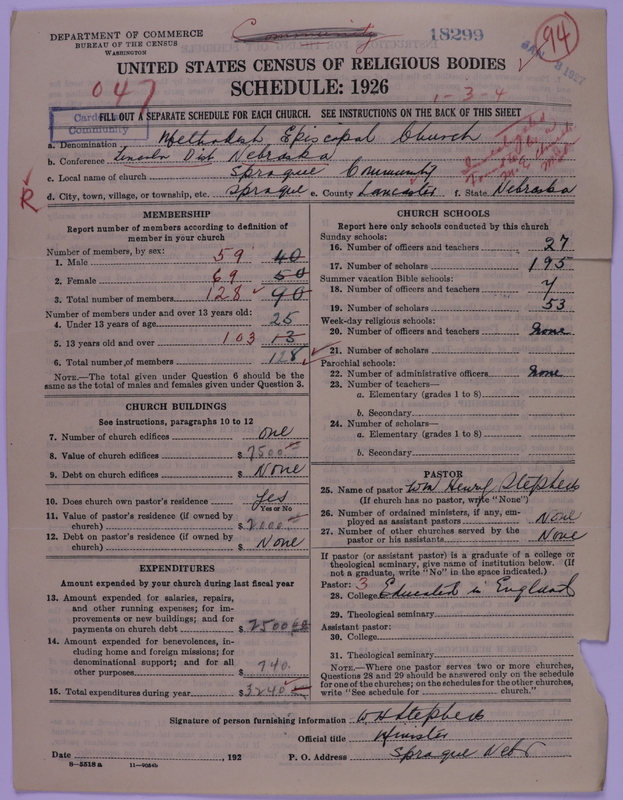 DEPARTMENT OF COMMERCE
BUREAU OF THE CENSUS
WASHINGTON
Community
18299
94
UNITED STATES CENSUS OF RELIGIOUS BODIES
SCHEDULE: 1926
047
1-3-4
FILL OUT A SEPARATE SCHEDULE FOR EACH CHURCH. SEE INSTRUCTIONS ON THE BACK OF THIS SHEET
Community
a. Denomination Methodist Episcopal Church
b. Conference Lincoln Dist Nebraska
c. Local name of church Sprague Community
d. City, town, village, or township, etc. Sprague e. County Lancaster f. State Nebraska
R
MEMBERSHIP
Report number of members according to definition of member in your church
Number of members, by sex:
1. Male 59 40
2. Female 69 50
3. Total number of members 128 90
Number of members under and over 13 years old:
4. Under 13 years of age 25
5. 13 years old and over 103 13
6. Total number of members 128
NOTE.—The total given under Question 6 should be the same as the total of males and females given under Question 3.
CHURCH BUILDINGS
See instructions, paragraphs 10 to 12
7. Number of church edifices one
8. Value of church edifices $ 7500
9. Debt on church edifices $ None
10. Does church own pastor's residence Yes
Yes or No
11. Value of pastor's residence (if owned by church) $ 2000
12. Debt on pastor's residence (if owned by church) $ None
EXPENDITURES
Amount expended by your church during last fiscal year
13. Amount expended for salaries, repairs, and other running expenses; for improvements or new buildings; and for payments on church debt $ 2500
14. Amount expended for benevolences, including home and foreign missions; for denominational support; and for all other purposes $ 740.
15. Total expenditures during year $ 3240
CHURCH SCHOOLS
Report here only schools conducted by this church
Sunday schools:
16. Number of officers and teachers 27
17. Number of scholars 195
Summer vacation Bible schools:
18. Number of officers and teachers 7
19. Number of scholars 53
Week-day religious schools:
20. Number of officers and teachers None
21. Number of scholars
Parochial schools:
22. Number of administrative officers None
23. Number of teachers—
a. Elementary (grades 1 to 8)
b. Secondary
24. Number of scholars—
a. Elementary (grades 1 to 8)
b. Secondary
PASTOR
25. Name of pastor Wm Henry Stephens
(If church has no pastor, write "None")
26. Number of ordained ministers, if any, employed as assistant pastors None
27. Number of other churches served by the pastor or his assistants None
If pastor (or assistant pastor) is a graduate of a college or theological seminary, give name of institution below. (If not a graduate, write "No" in the space indicated.)
Pastor: 3
28. College Educated in England
29. Theological seminary
Assistant pastor:
30. College
31. Theological seminary
NOTE.—Where one pastor serves two or more churches, Questions 28 and 29 should be answered only on the schedule for one of the churches; on the schedules for the other churches, write "See schedule for church."
Signature of person furnishing information W H Stephens
Official title Minister
Date , 192 P. O. Address Sprague Nebr
8-5518 a 11-9034b